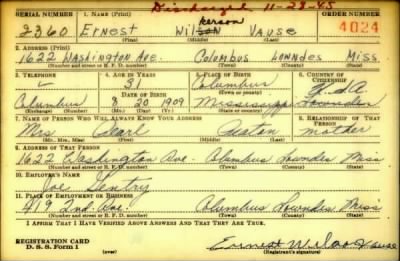 Discharged 11-23-45
SERIAL NUMBER 1. NAME (Print) ORDER NUMBER
2360 Ernest Wilkerson Vause 4024
(First) (Middle) (Last)
2. ADDRESS (Print)
1622 Washington Ave. Columbus Lowndes Miss.
(Number and street or R. F. D. number) (Town) (County) (State)
3. TELEPHONE 4. AGE IN YEARS 5. PLACE OF BIRTH 6. COUNTRY OF CITIZENSHIP
31 Columbus
DATE OF BIRTH (Town or county)
Columbus 8 20 1909 Mississippi Lowndes
(Exchange) (Number) (Mo.) (Day) (Yr.) (State or country)
7. NAME OF PERSON WHO WILL ALWAYS KNOW YOUR ADDRESS 8. RELATIONSHIP OF THAT PERSON
Mrs Pearl Seaton mother
(Mr., Mrs., Miss) (First) (Middle) (Last)
9. ADDRESS OF THAT PERSON
1622 Washington Ave. Columbus Lowndes Miss
(Number and street or R. F. D. number) (Town) (County) (State)
10. EMPLOYER'S NAME
Joe Gentry
11. PLACE OF EMPLOYMENT OR BUSINESS
419 2nd. Ave. Columbus Lowndes Miss
(Number and street or R. F. D. number) (Town) (County) (State)
I AFFIRM THAT I HAVE VERIFIED ABOVE ANSWERS AND THAT THEY ARE TRUE.
REGISTRATION CARD
D. S. S. Form 1 (over) Ernest Vause
(Registrant's signature)